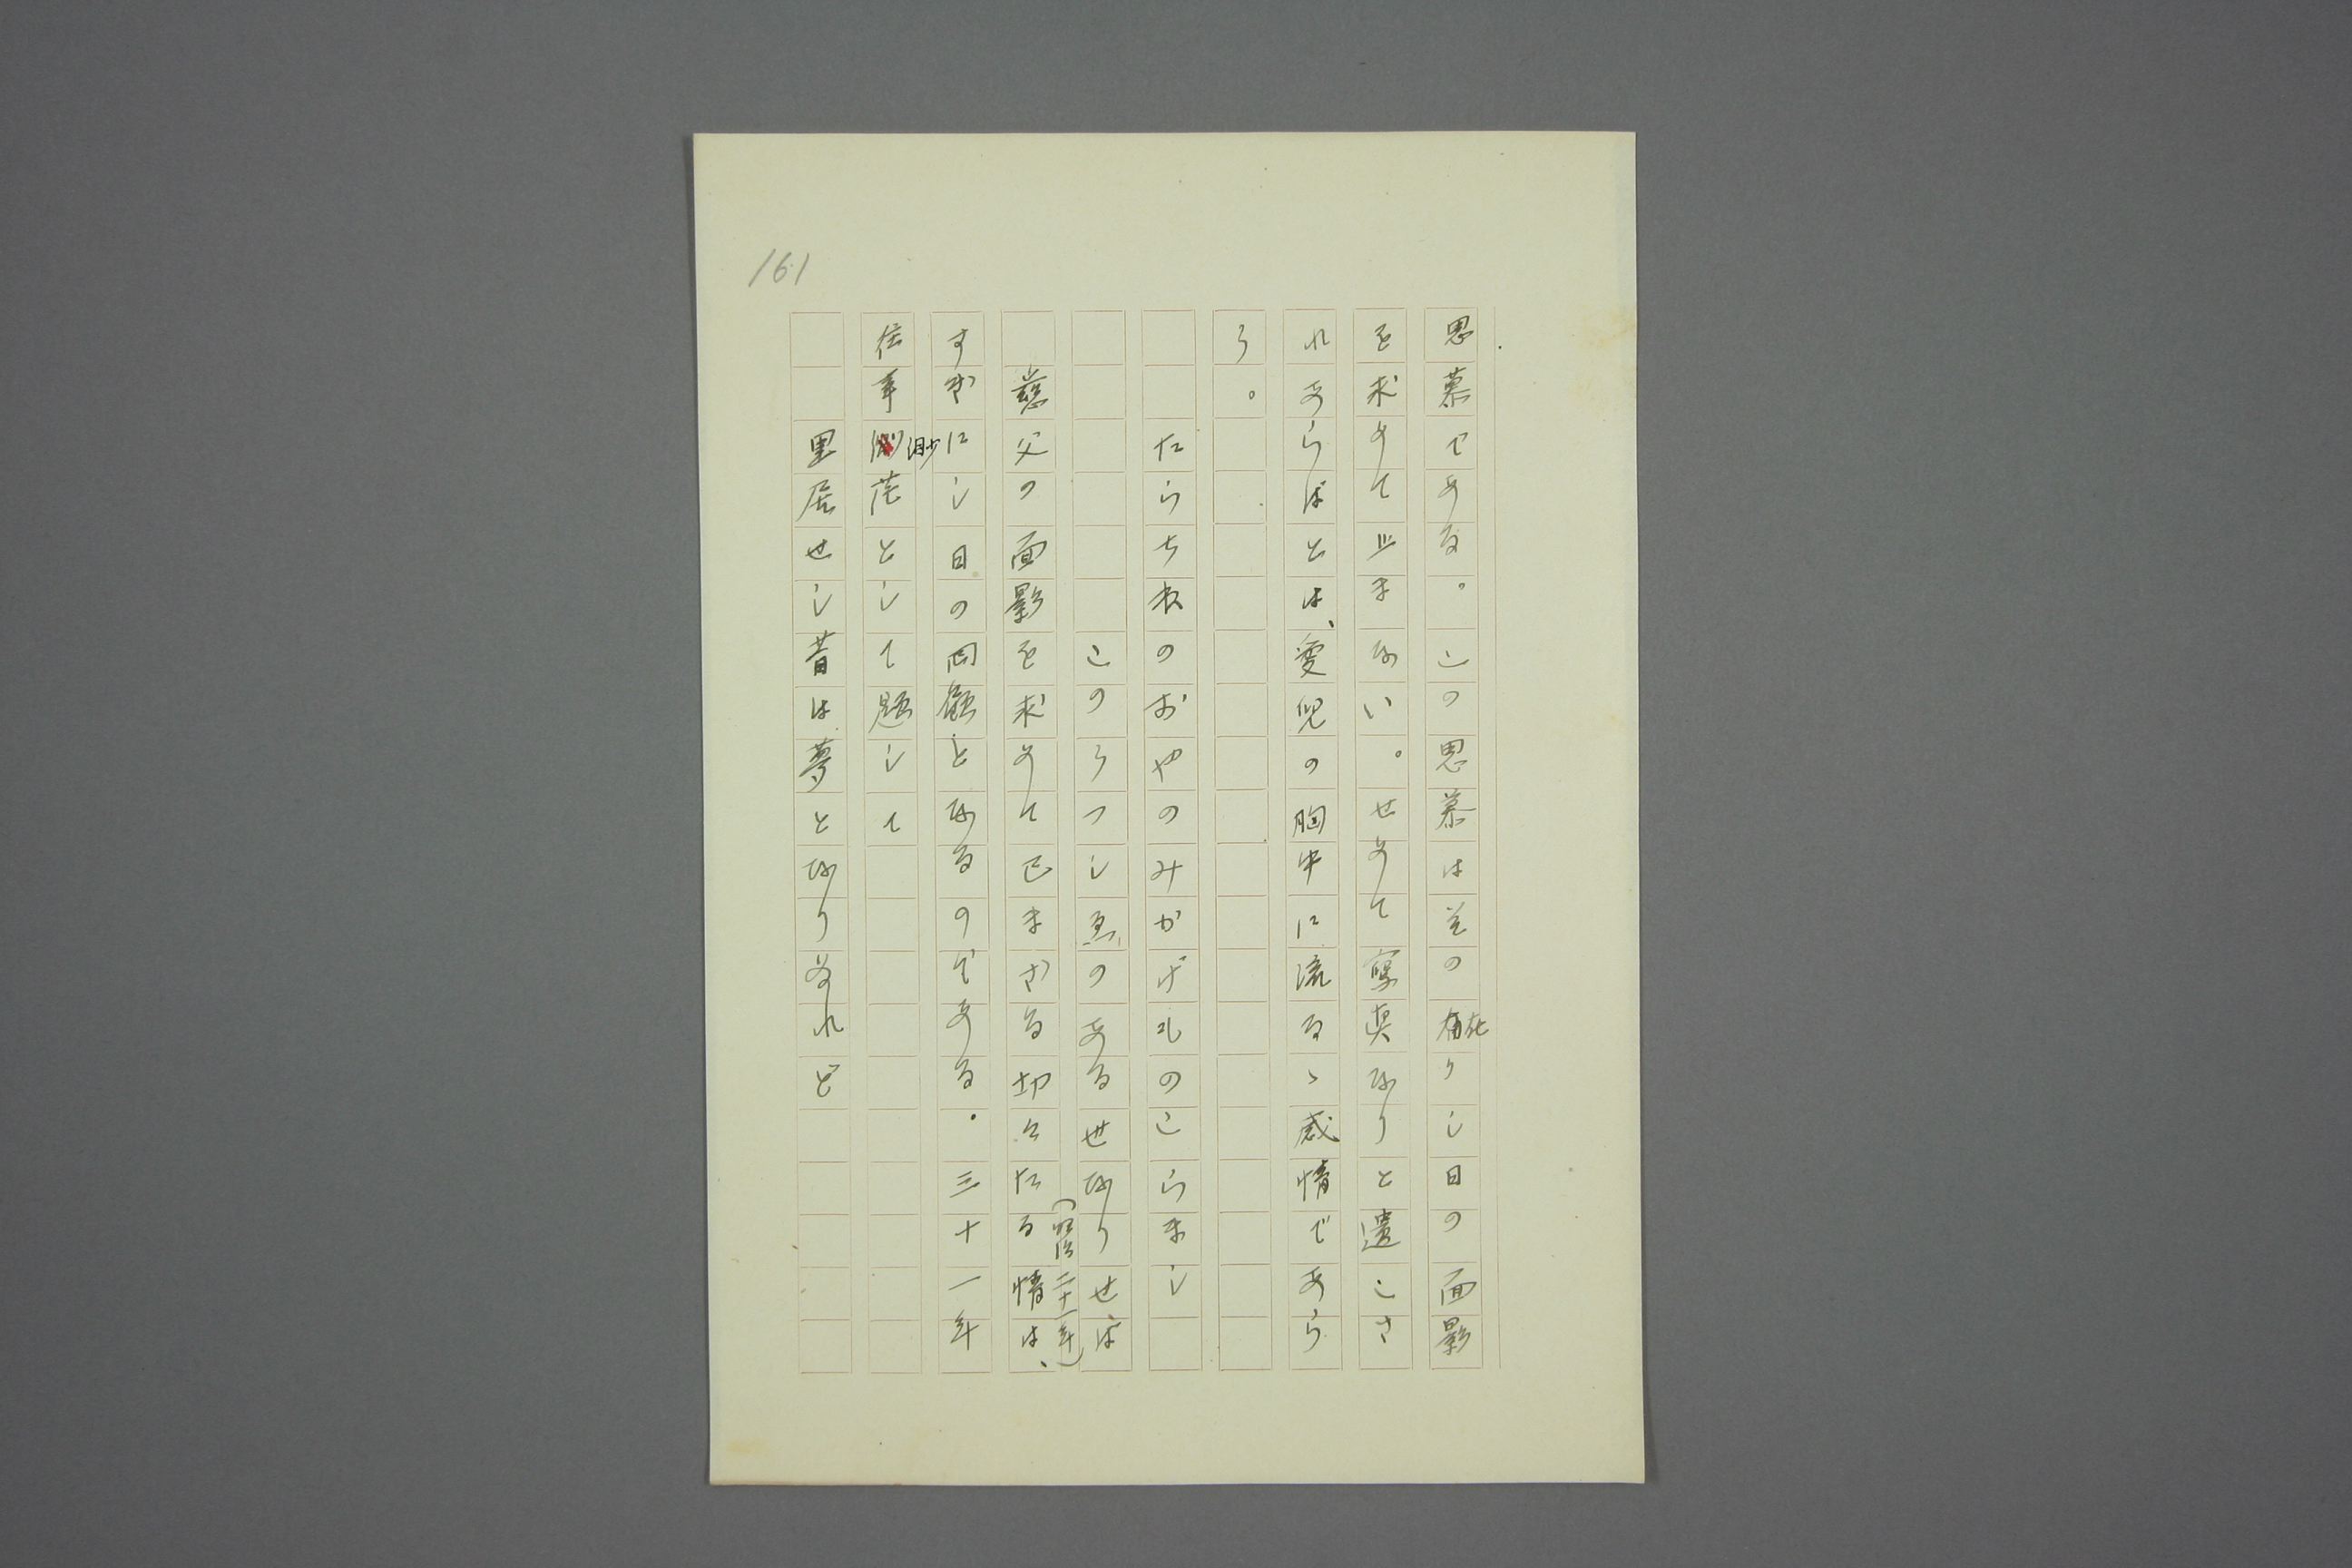 161
思慕である。この思慕はその在りし日の面影
を求めて止まない。せめて寫真なりと遺こさ
れあらばとは、愛兒の胸中に流るゝ感情であら
う。
たらちねのおやのみかげものこらまし
このうつしゑのある世なりせば
(明治二十一年)
慈父の面影を求めて已まざる切々たる情は、
すぎにし日の回顧となるのである。三十一年
往事渺茫として題して
里居せし昔は夢となりぬれど